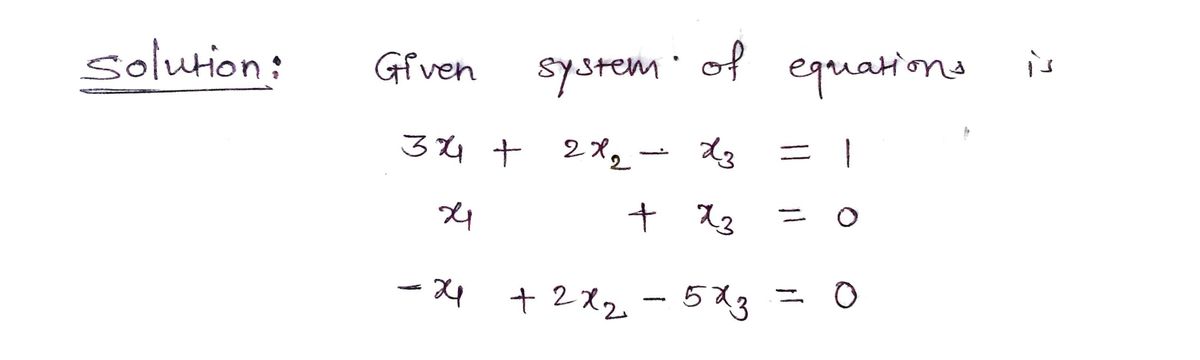 Solution: Given system of equations is
3x₁ + 2x₂ - x₃ = 1
x₁ + x₃ = 0
-x₁ + 2x₂ - 5x₃ = 0